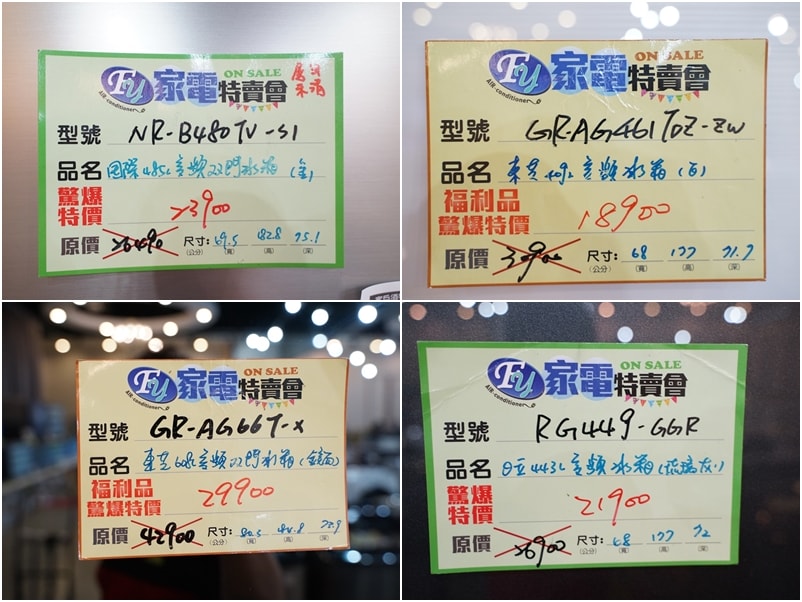 Fy 家電特賣會 ON SALE
AIR-conditioner
型號 NR-B480TV-S1
品名 国際485L变頻双門冰箱(金)
驚爆特價 23900
原價 26490 尺寸:(公分) 69.5(寬) 182.8(高) 75.1(深)
Fy 家電特賣會 ON SALE
AIR-conditioner
型號 GR-AG461TDZ-ZW
品名 東芝409L变頻冰箱(白)
福利品
驚爆特價 18900
原價 30900 尺寸:(公分) 68(寬) 177(高) 71.7(深)
Fy 家電特賣會 ON SALE
AIR-conditioner
型號 GR-AG66T-X
品名 東芝608L变頻双門冰箱(鏡面)
福利品
驚爆特價 29900
原價 42900 尺寸:(公分) (寬) (高) (深)
Fy 家電特賣會 ON SALE
AIR-conditioner
型號 RG449-GGR
品名 日立443L变頻冰箱(琉璃灰)
驚爆特價 21900
原價 26900 尺寸:(公分) 68(寬) 177(高) 72(深)